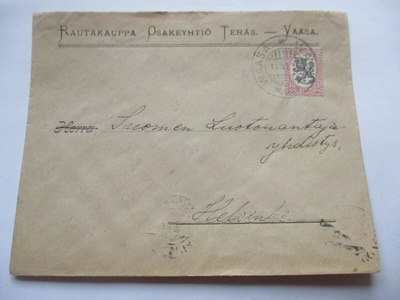 RAUTAKAUPPA OSAKEYHTIÖ TERÄS. — VAASA.
VAASA
Herra Suomen Luotonantaja-
yhdistys,
Helsinki.